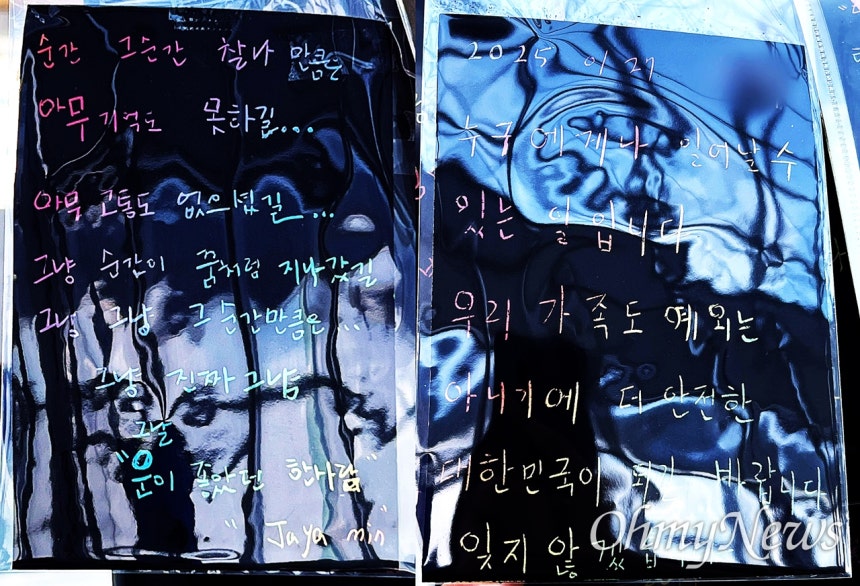 순간 그순간 찰나 만큼은
아무 기억도 못하길...
아무 고통도 없으셨길...
그냥 순간이 꿈처럼 지나갔길
그냥 그냥 그 순간만큼은...
그냥 진짜 그냥
그날
"운이 좋았던 한사람"
"Jaya min"
2025
누구에게나 일어날 수
있는 일 입니다
우리 가족도 예외는
아니기에 더 안전한
대한민국이 되기 바랍니다
잊지 않겠습니다
OhmyNews